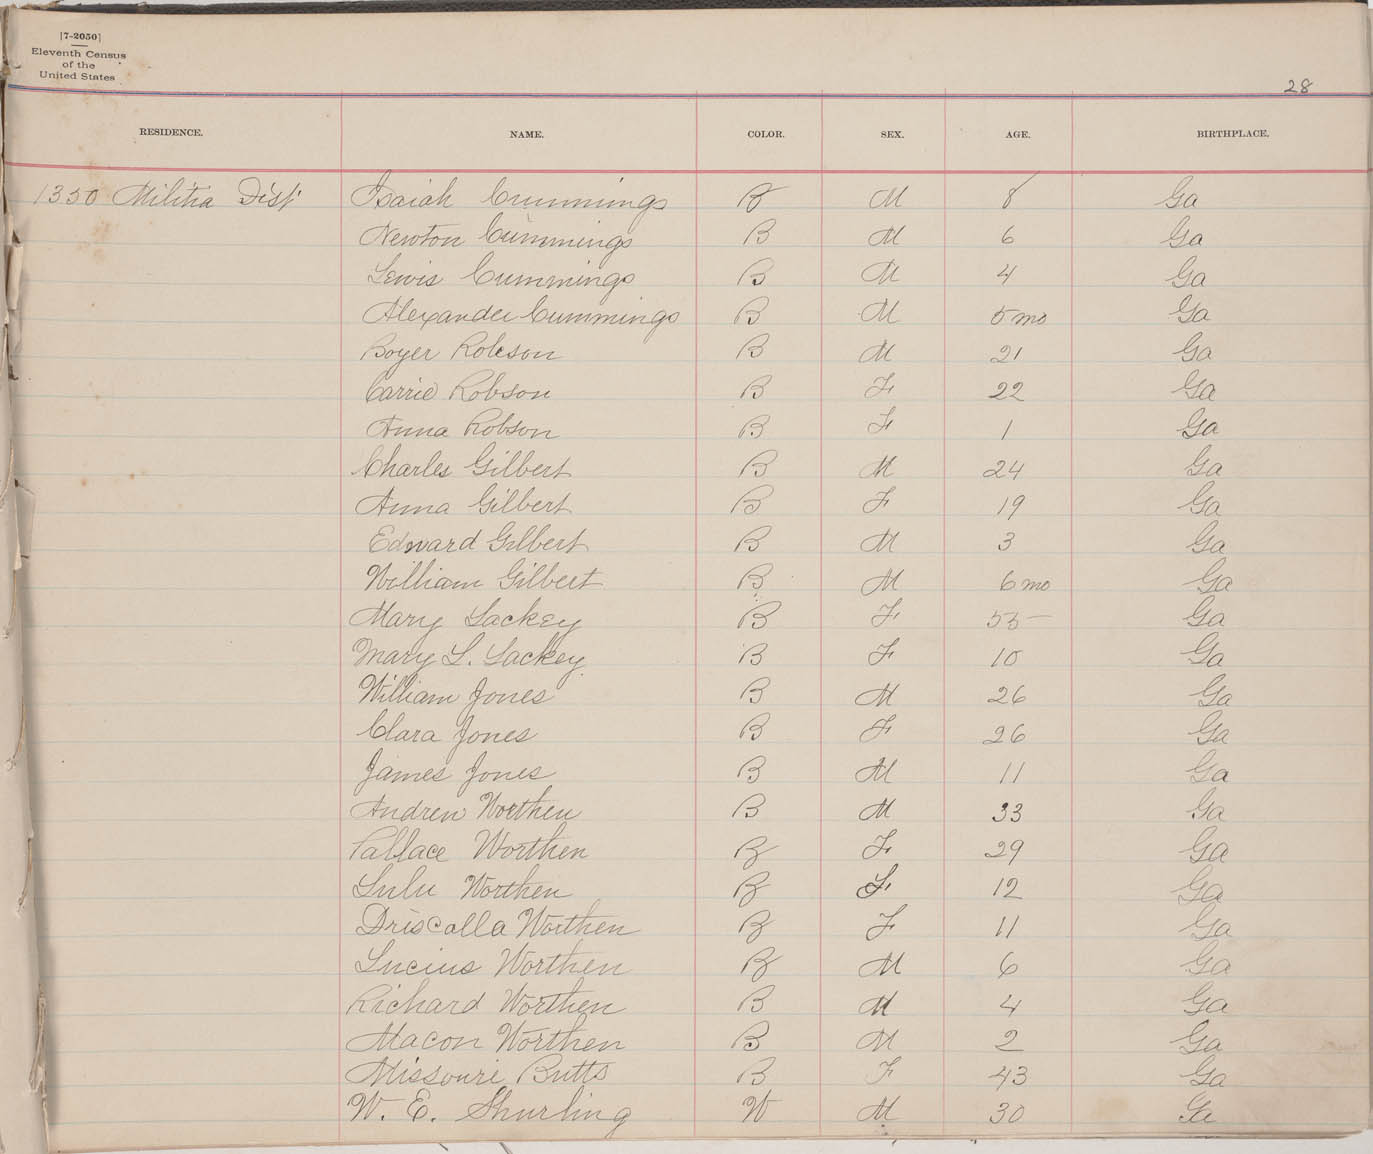 [7-2050]
Eleventh Census
of the
United States
28
RESIDENCE. NAME. COLOR. SEX. AGE. BIRTHPLACE.
1350 Militia Dist Isaiah Cummings B M 8 Ga
Newton Cummings B M 6 Ga
Lewis Cummings B M 4 Ga
Alexander Cummings B M 5 mo Ga
Boyer Robson B M 21 Ga
Carrie Robson B F 22 Ga
Anna Robson B F 1 Ga
Charles Gilbert B M 24 Ga
Anna Gilbert B F 19 Ga
Edward Gilbert B M 3 Ga
William Gilbert B M 6 mo Ga
Mary Lackey B F 55 Ga
Mary L. Lackey B F 10 Ga
William Jones B M 26 Ga
Clara Jones B F 26 Ga
James Jones B M 11 Ga
Andrew Worthen B M 33 Ga
Pallace Worthen B F 29 Ga
Lulu Worthen B F 12 Ga
Driscalla Worthen B F 11 Ga
Lucius Worthen B M 6 Ga
Richard Worthen B M 4 Ga
Macon Worthen B M 2 Ga
Missouri Butts B F 43 Ga
W. E. Shurling W M 30 Ga